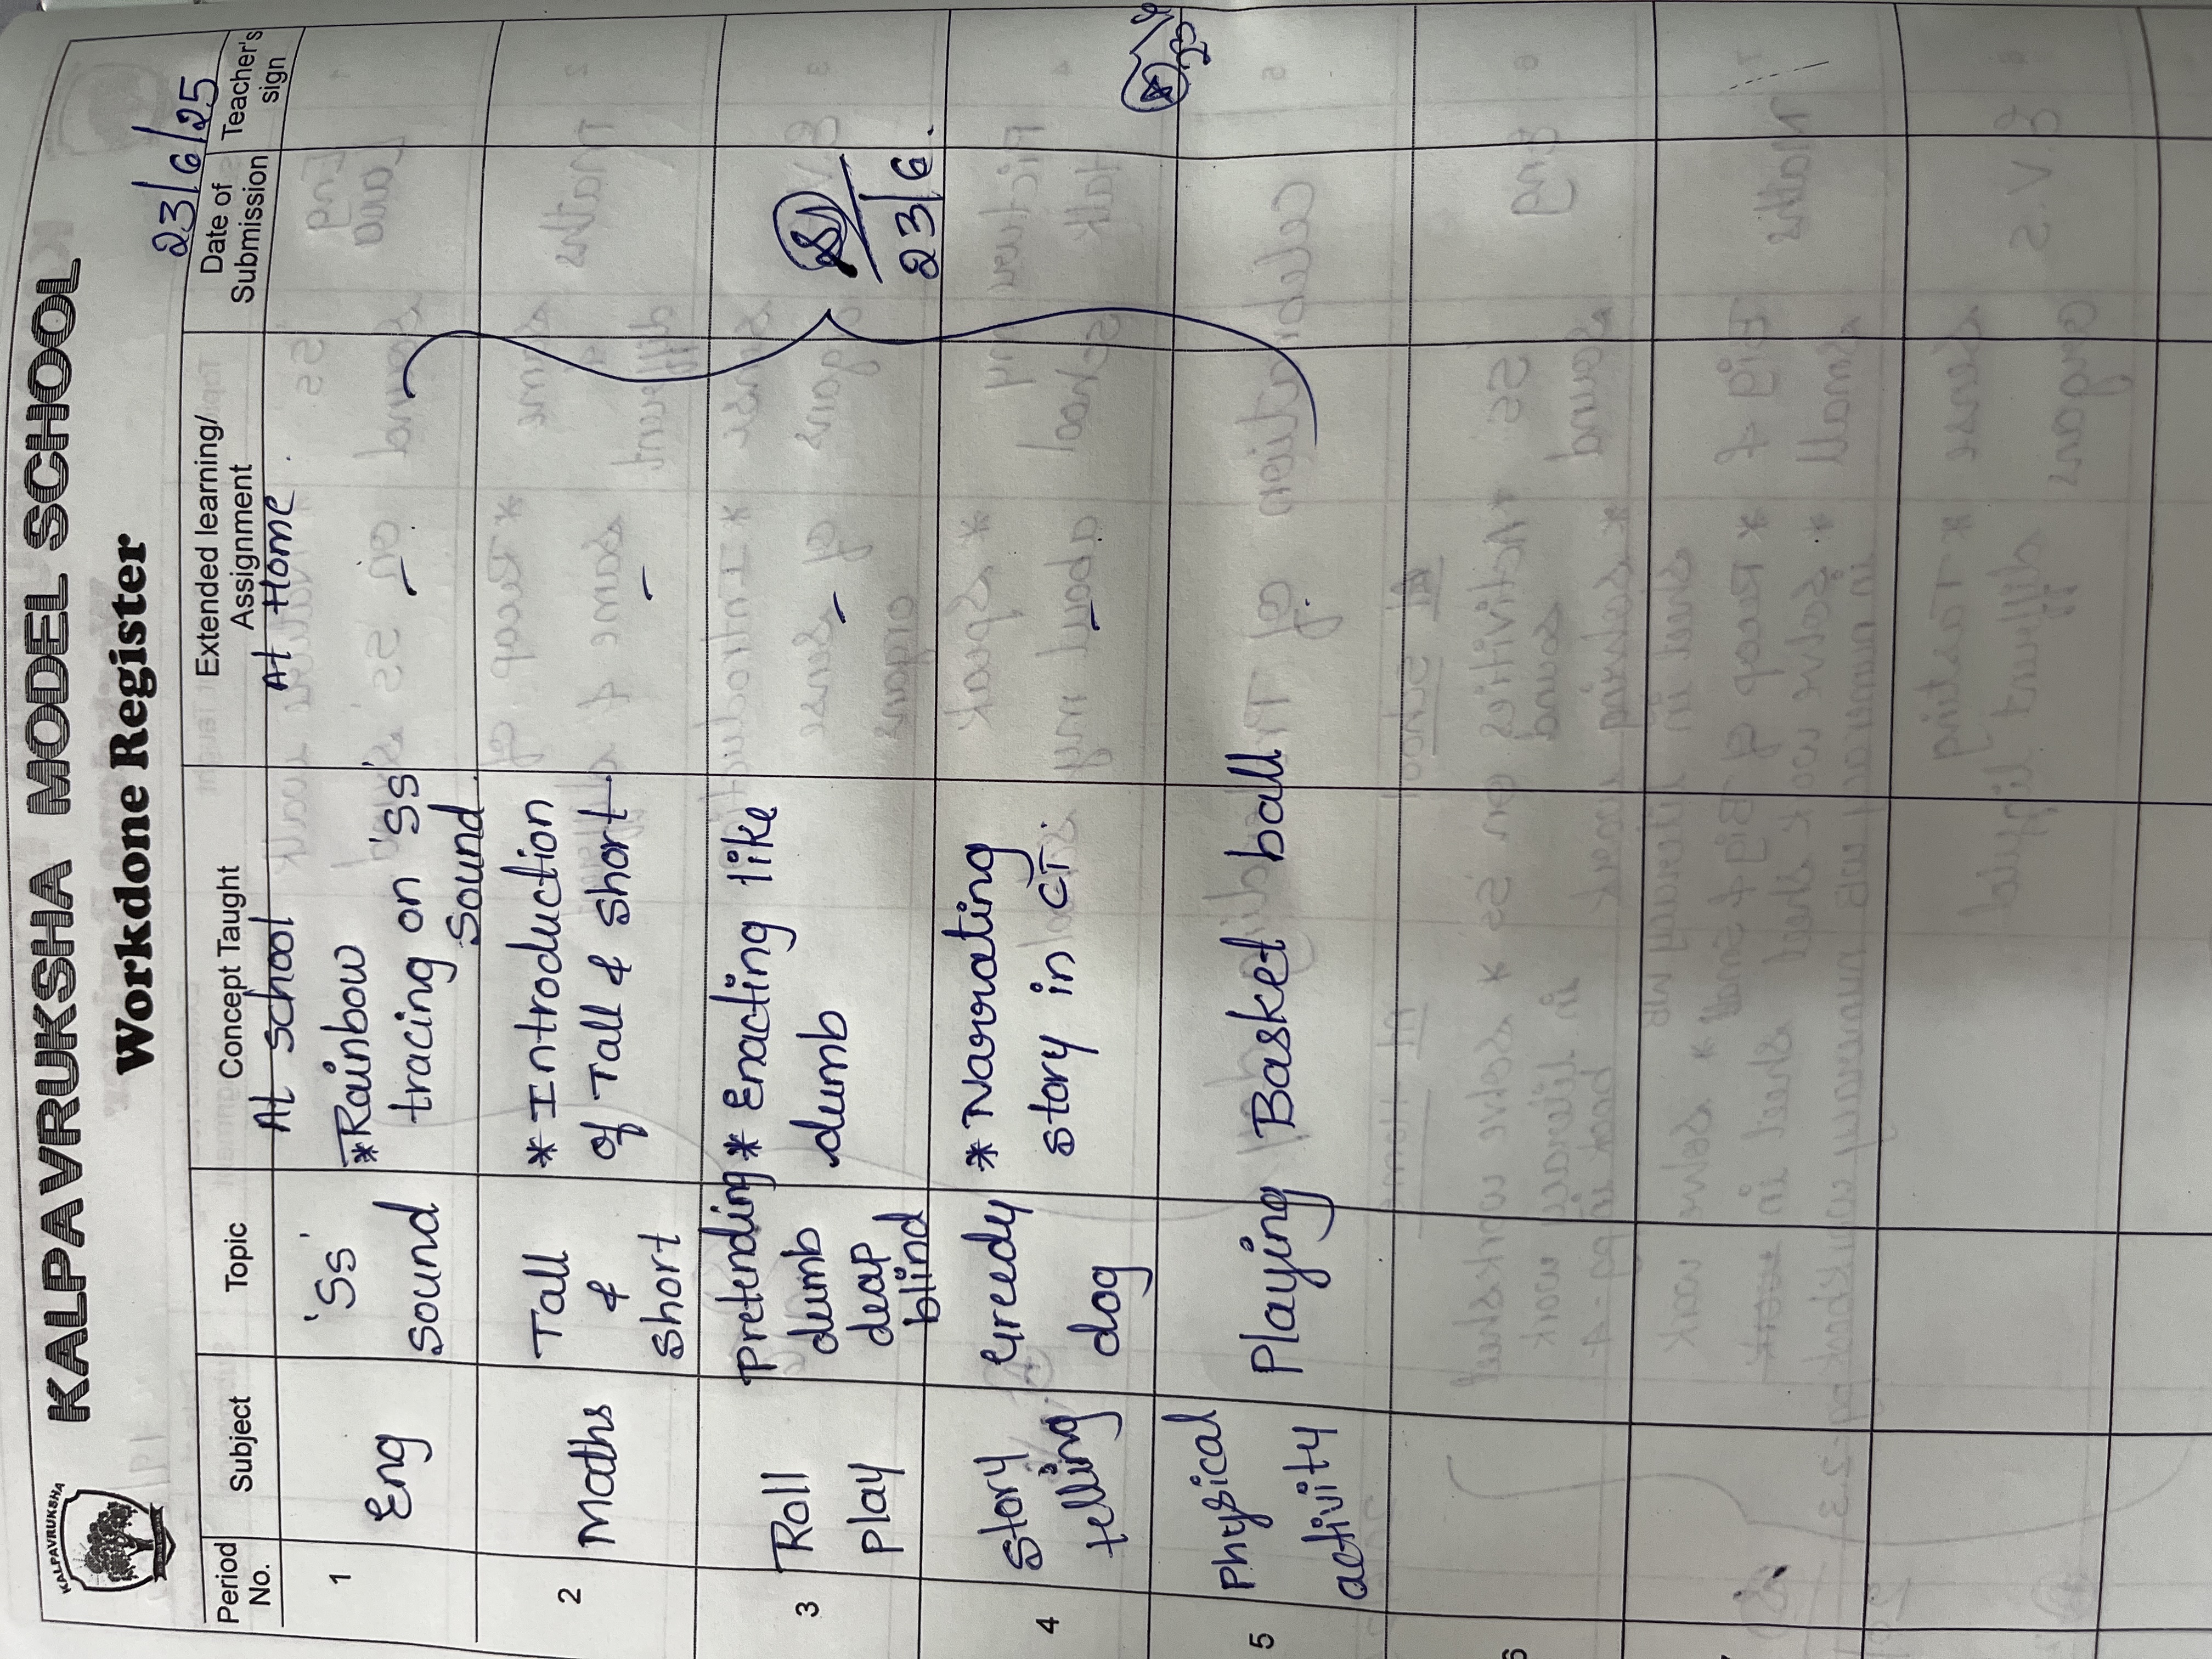 KALPAVRUKSHA
KALPAVRUKSHA MODEL SCHOOL
Workdone Register
23/6/25
Period No.
Subject
Topic
Concept Taught
Extended learning/ Assignment
Date of Submission
Teacher's sign
At school
At Home
1
Eng
'Ss'
sound
*Rainbow
tracing on 'Ss'
sound
-
2
Maths
Tall
&
short
*Introduction
of Tall & short
-
3
Roll
Play
Pretending
dumb
deap
blind
* Enacting like
dumb
-
23/6.
4
Story
telling
Greedy
dog
* Narrating
story in CT.
-
5
Physical
activity
Playing Basket ball
6